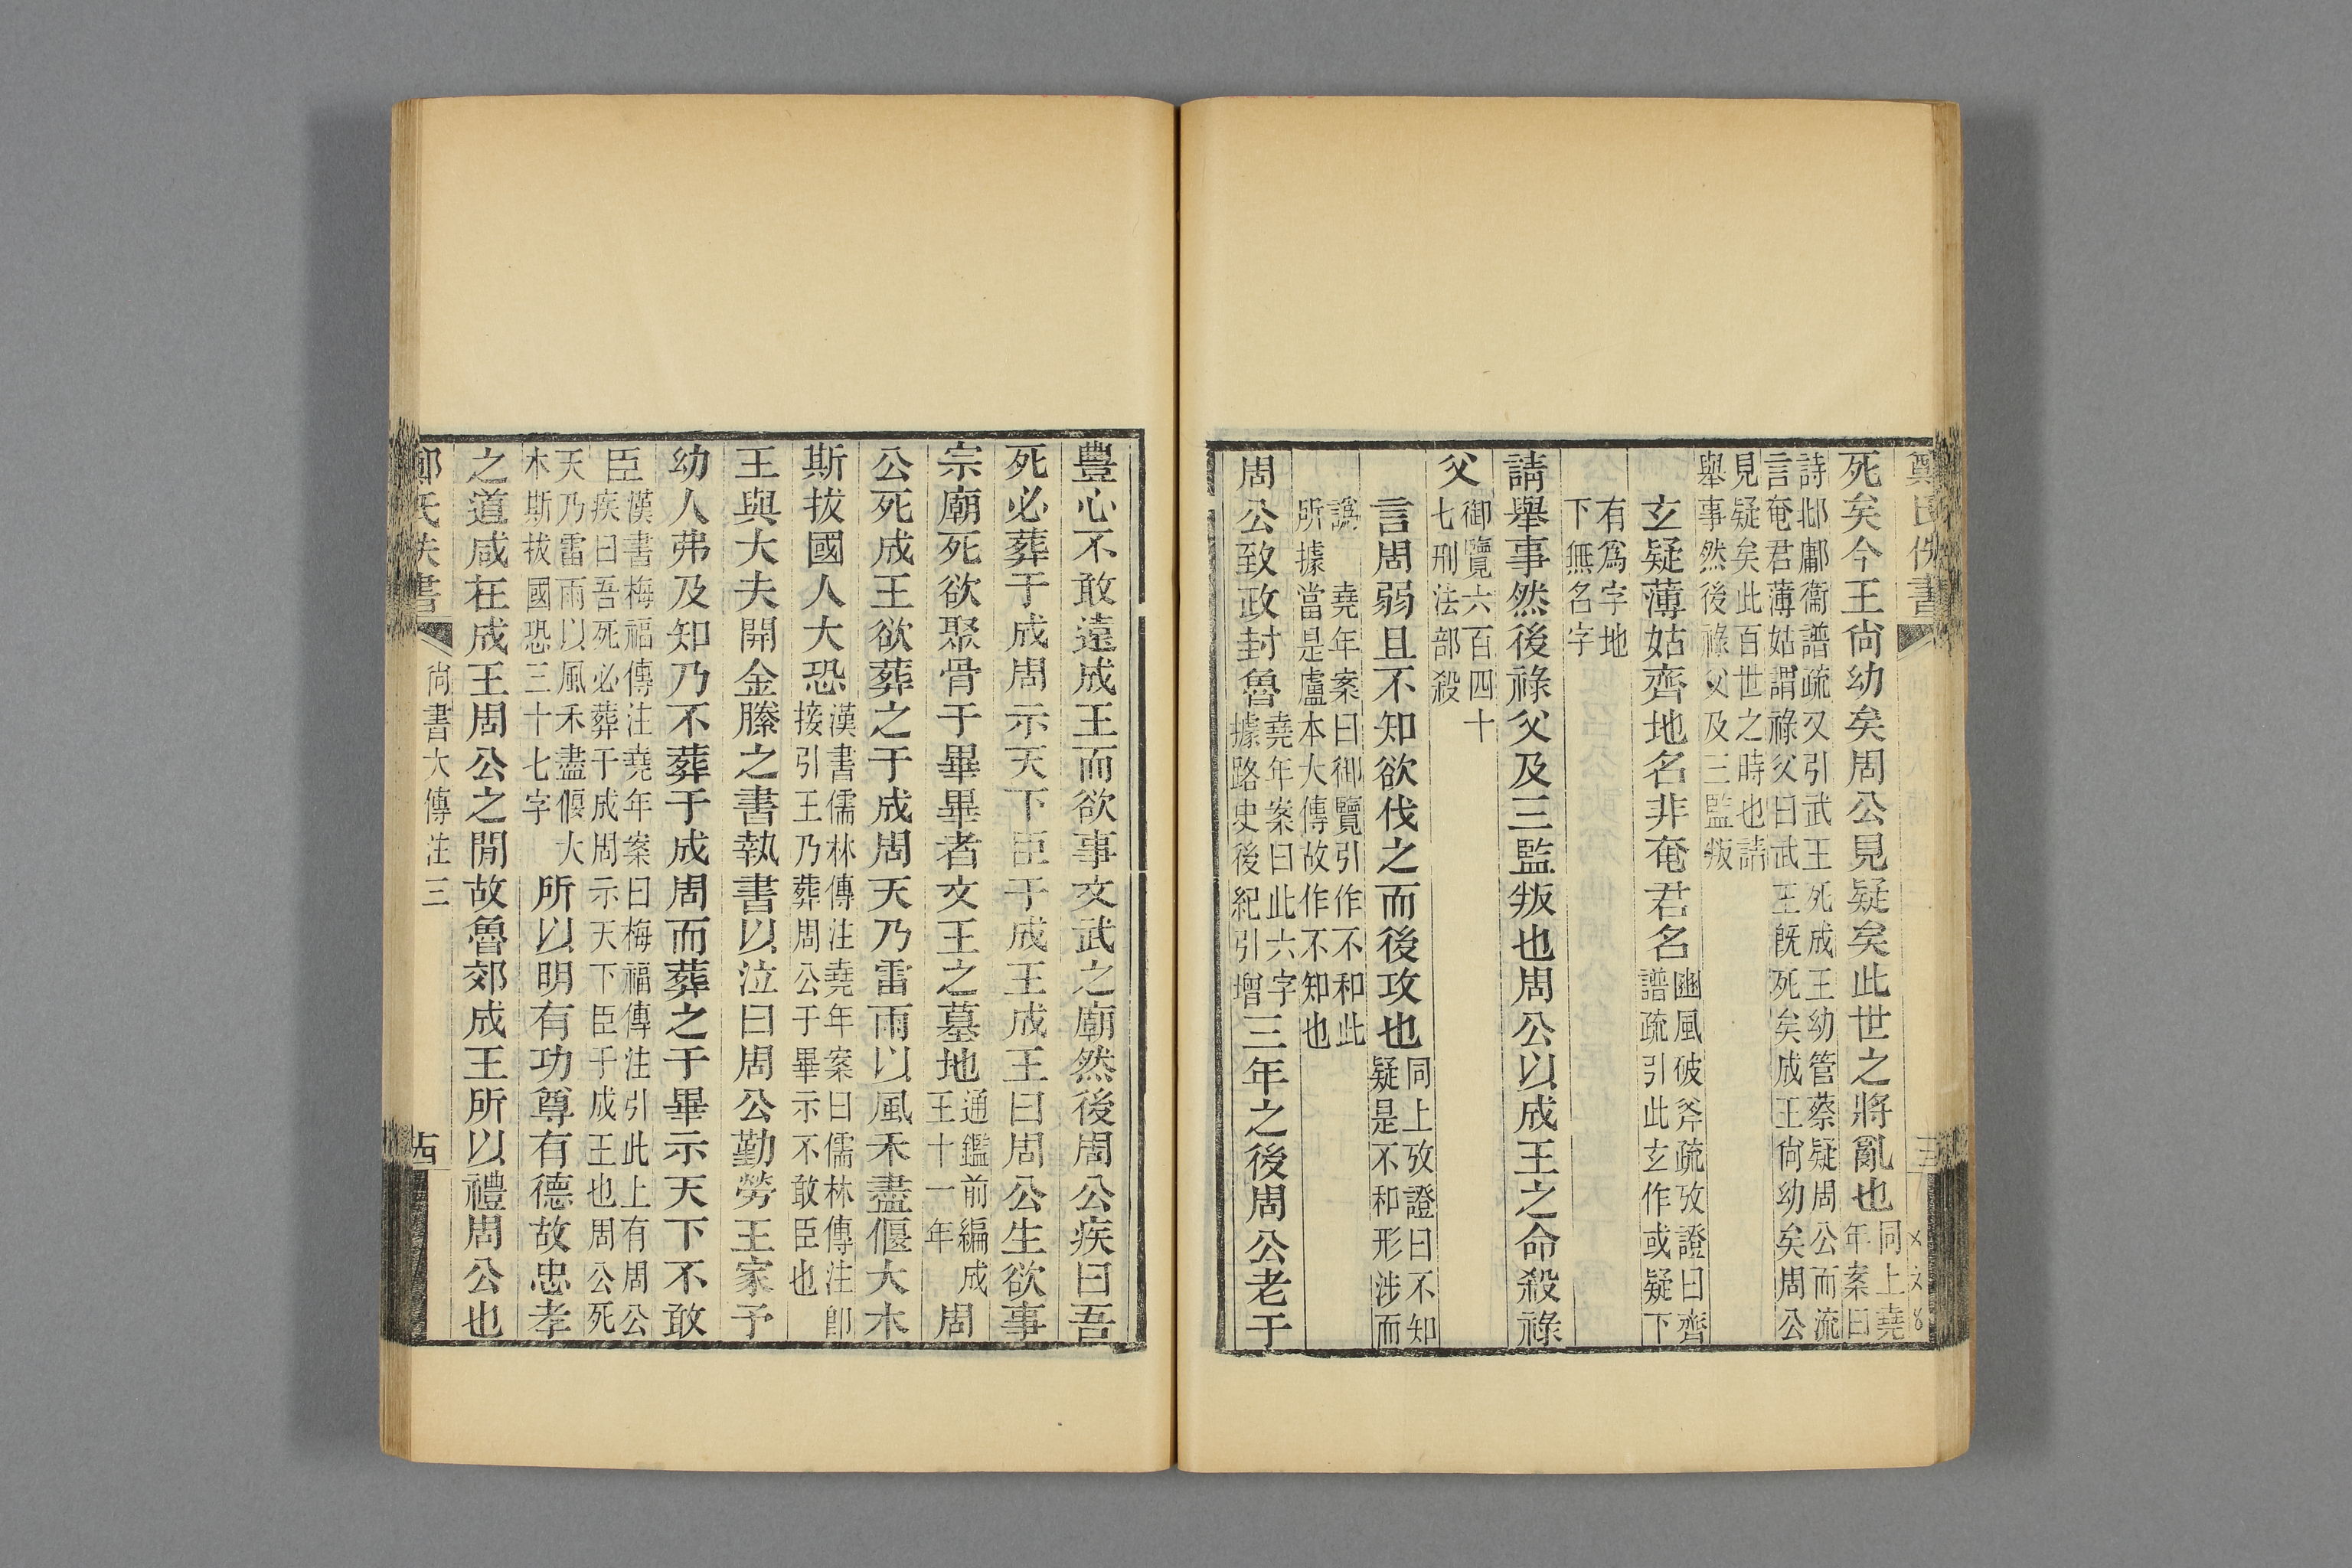 鄭氏佚書
死矣今王尙幼矣周公見疑矣此世之將亂也同上堯年案曰
詩邶鄘衞譜疏又引武王死成王幼管蔡疑周公而流
言奄君薄姑謂祿父曰武王旣死矣成王尙幼矣周公
見疑矣此百世之時也請
舉事然後祿父及三監叛
玄疑薄姑齊地名非奄君名豳風破斧疏攷證曰齊譜疏引此玄作或疑下
有爲字地
下無名字
請舉事然後祿父及三監叛也周公以成王之命殺祿
父御覽六百四十七刑法部殺
言周弱且不知欲伐之而後攻也同上攷證曰不知疑是不和形涉而
譌　堯年案曰御覽引作不和此
所據當是盧本大傳故作不知也
周公致政封魯堯年案曰此六字據路史後紀引增三年之後周公老于
豐心不敢遠成王而欲事文武之廟然後周公疾曰吾
死必葬于成周示天下臣于成王成王曰周公生欲事
宗廟死欲聚骨于畢畢者文王之墓地通鑑前編成王十一年周
公死成王欲葬之于成周天乃雷雨以風禾盡偃大木
斯拔國人大恐漢書儒林傳注堯年案曰儒林傳注卽接引王乃葬周公于畢示不敢臣也
王與大夫開金縢之書執書以泣曰周公勤勞王家予
幼人弗及知乃不葬于成周而葬之于畢示天下不敢
臣漢書梅福傳注堯年案曰梅福傳注引此上有周公疾曰吾死必葬于成周示天下臣于成王也周公死
天乃雷雨以風禾盡偃大木斯拔國恐三十七字所以明有功尊有德故忠孝
之道咸在成王周公之閒故魯郊成王所以禮周公也
氏佚書
尙書大傳注三